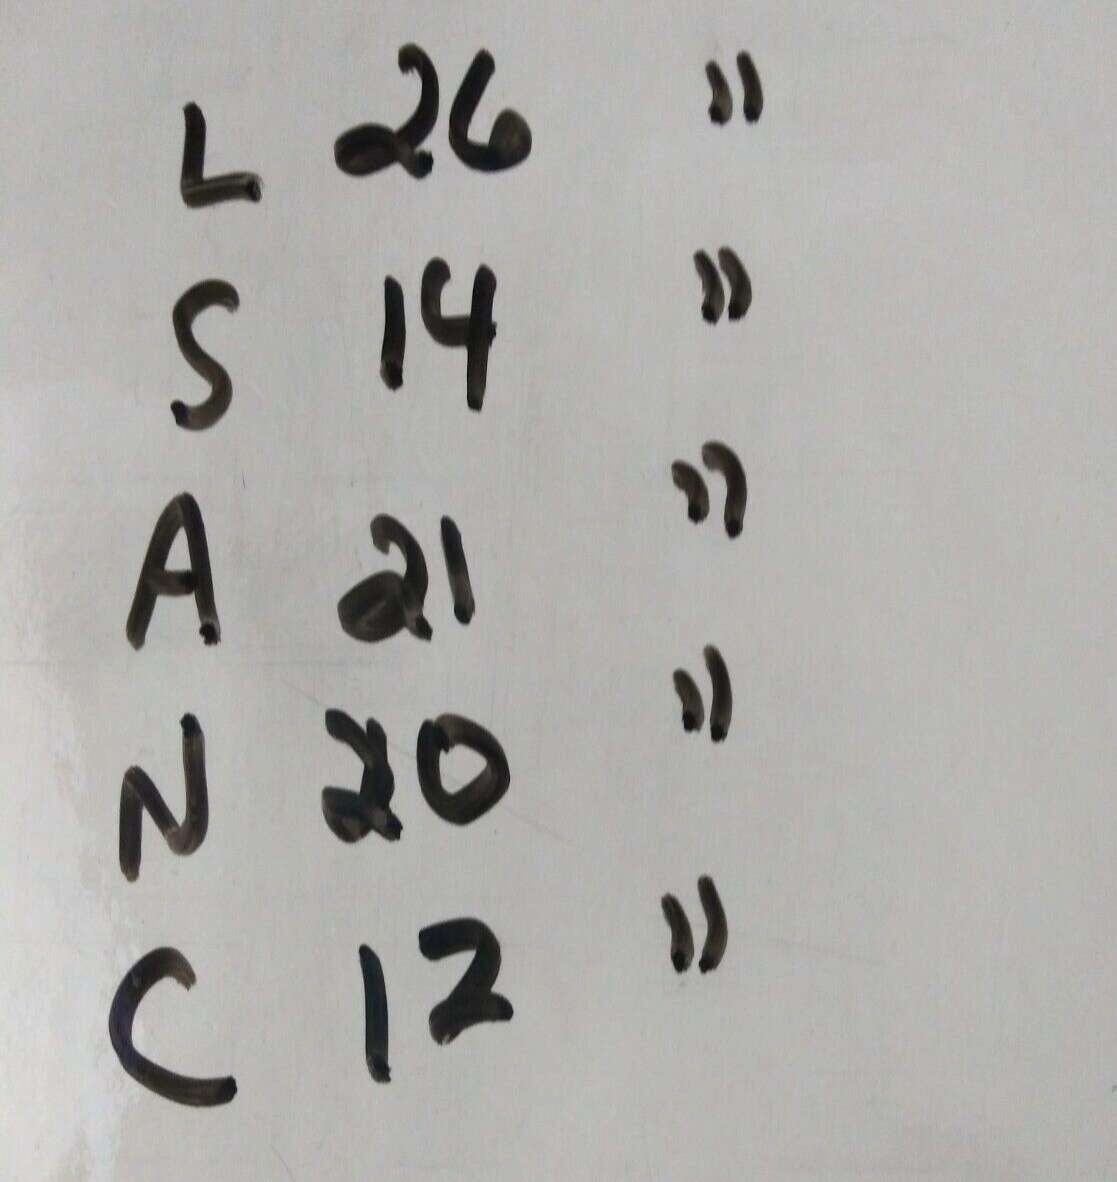 L 26 "
S 14 "
A 21 "
N 20 "
C 12 "